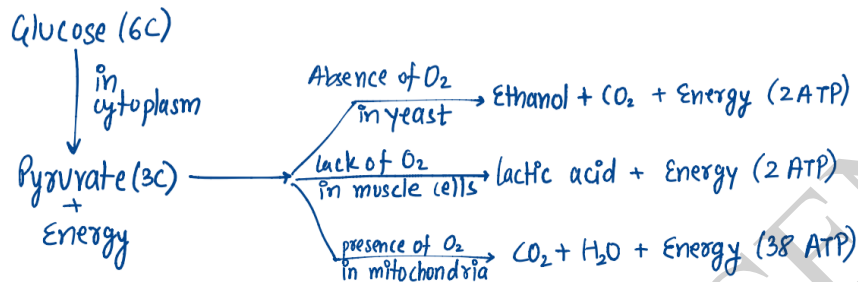 Glucose (6C)
in
cytoplasm
Pyruvate (3C)
+
Energy
Absence of O₂
in yeast
Ethanol + CO₂ + Energy (2 ATP)
Lack of O₂
in muscle cells
Lactic acid + Energy (2 ATP)
presence of O₂
in mitochondria
CO₂ + H₂O + Energy (38 ATP)